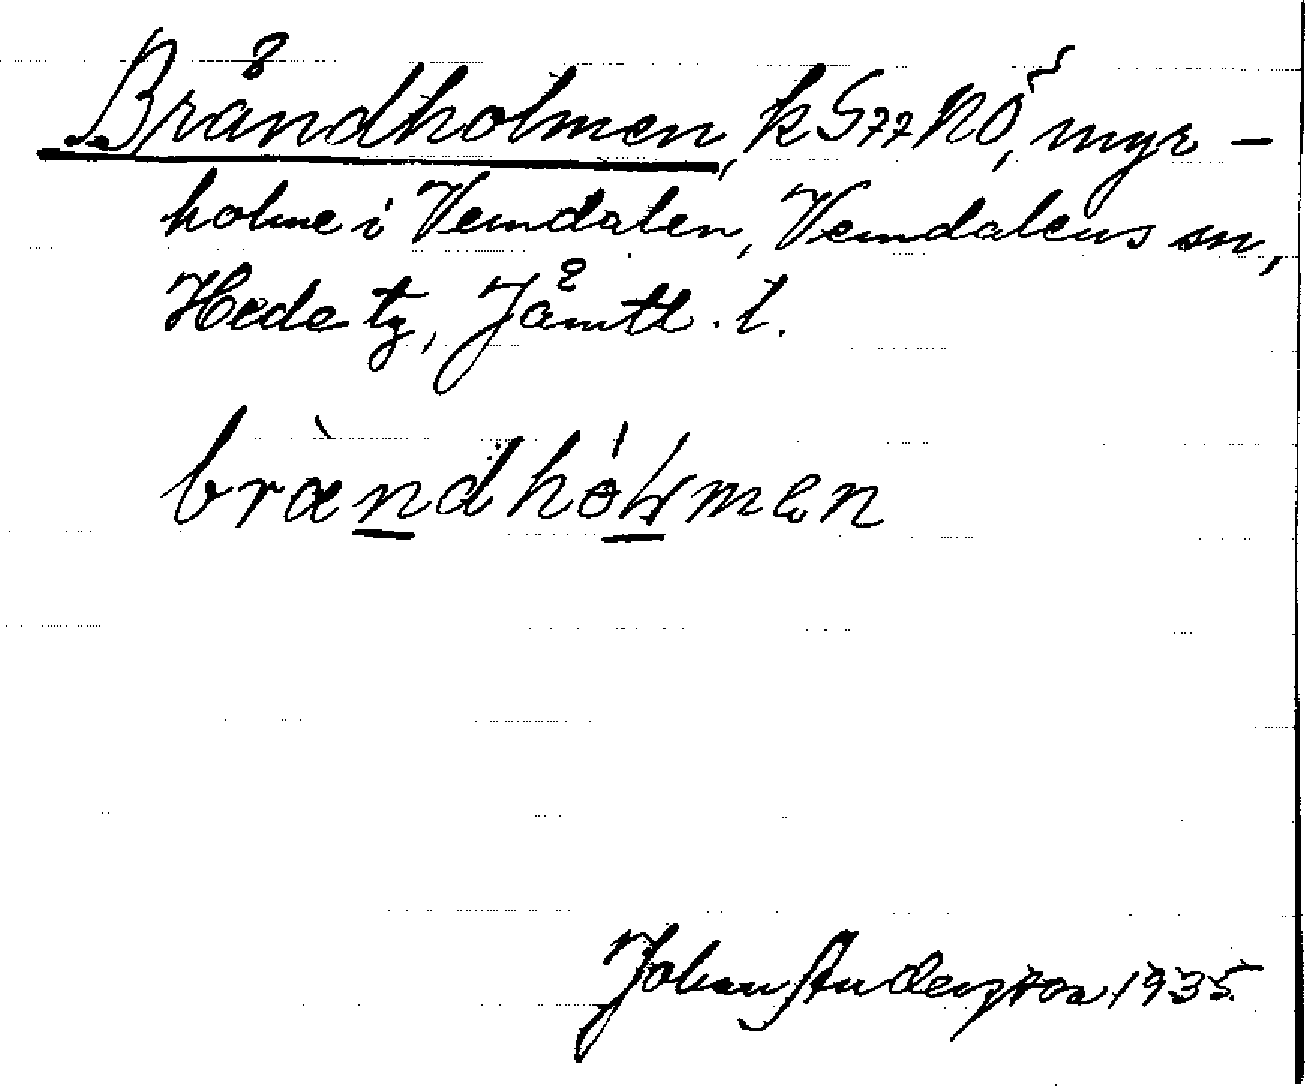 Brändholmen, k S77 NÖ, myr-
holme i Vemdalen, Vemdalens sn,
Hede tg, Jämtl. l.
brændhólmen
Johan Anderzson 1935